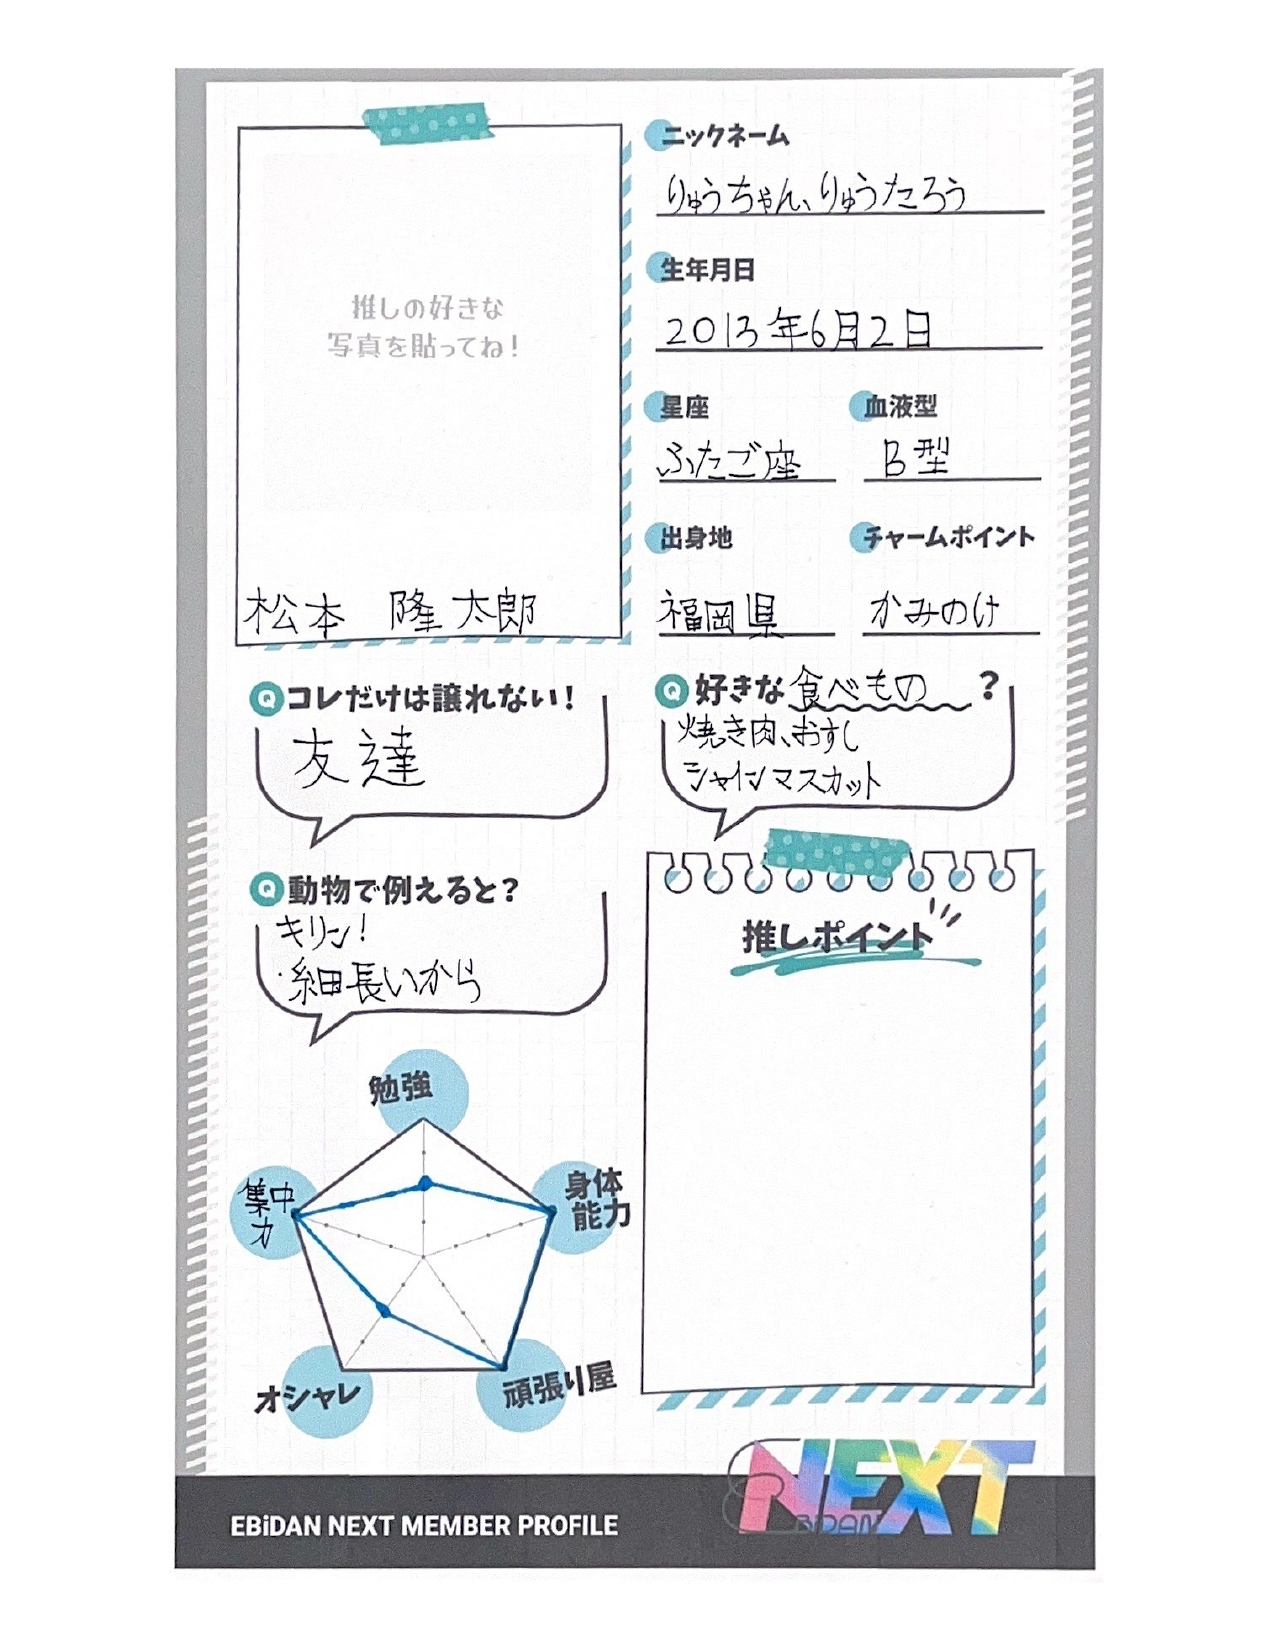 推しの好きな
写真を貼ってね！
松本 隆太郎
ニックネーム
りゅうちゃん、りゅうたろう
生年月日
2013年6月2日
星座
ふたご座
血液型
B型
出身地
福岡県
チャームポイント
かみのけ
Qコレだけは譲れない！
友達
Q好きな食べもの？
焼き肉、おすし
シャインマスカット
Q動物で例えると？
キリン！
・細長いから
推しポイント
勉強
身体
能力
頑張り屋
オシャレ
集中
力
EBiDAN NEXT MEMBER PROFILE
EBiDAN NEXT